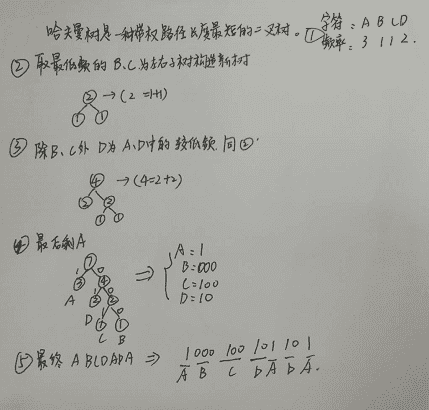 哈夫曼树是一种带权路径长度最短的二叉树。① 字符: A B C D
频率: 3 1 1 2.
② 取最低频的 B、C 为左右子树构造新树
② → (2 = 1+1)
① ①
③ 除 B、C外 D为 A、D中的较低频, 同②.
④ → (4=2+2)
② ②
① ①
④ 最后剩A
⑦
1 0
③ ④
A 1 0
② ②
D 1 0
① ①
C B
⇒
A = 1
B = 000
C = 100
D = 10
⑤ 最终 A B C D A D A ⇒ 1 000 100 101 10 1
A B C D A D A.